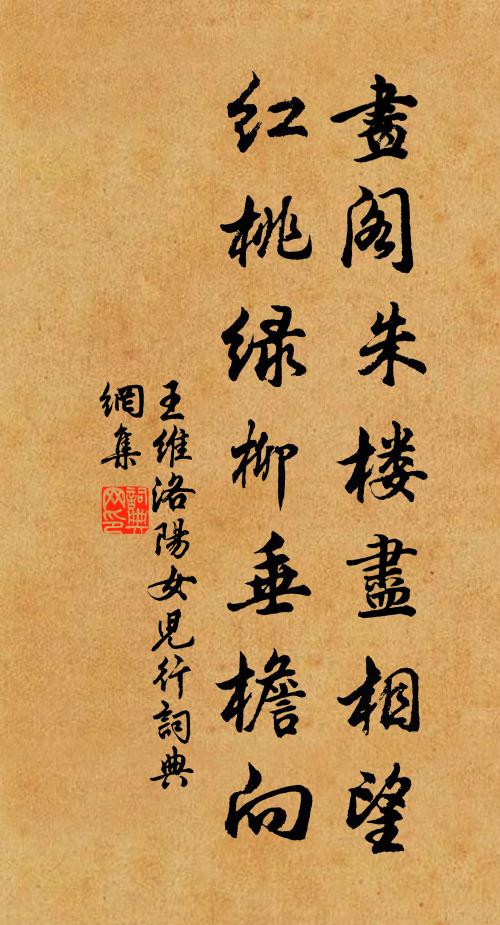 畫阁朱楼盡相望
红桃绿柳垂檐向
王维洛陽女児行詞典
網集
詞典
网印